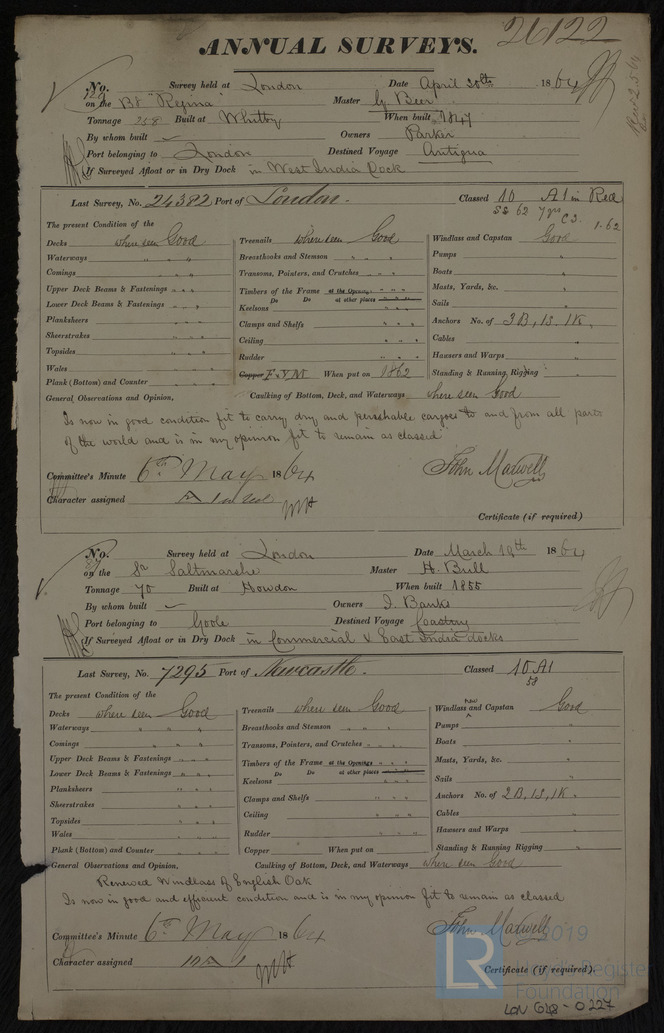 26122
ANNUAL SURVEYS.
No. Survey held at London Date April 20th 1864
on the Bk "Regina" Master G. Beer
Tonnage 258 Built at Whitby When built 1847
By whom built Owners Parker
Port belonging to London Destined Voyage Antigua
If Surveyed Afloat or in Dry Dock in West India Dock
Last Survey, No. 24382 Port of London. Classed 10 A1 in Red
SS 62 7 yrs C.S. 1.62
The present Condition of the
Decks where seen Good Treenails where seen Good Windlass and Capstan Good
Waterways " " " Breasthooks and Stemson " " " Pumps "
Comings " " " Transoms, Pointers, and Crutches " " " Boats "
Upper Deck Beams & Fastenings " " " Timbers of the Frame at the Openings " " " Masts, Yards, &c. "
Do Do at other places
Lower Deck Beams & Fastenings " " " Keelsons " " " Sails "
Planksheers " " " Clamps and Shelfs " " " Anchors No. of 3B, 1S, 1K,
Sheerstrakes " " " Ceiling " " " Cables "
Topsides " " " Rudder " " " Hawsers and Warps "
Wales " " " Copper F.Y.M When put on 1862 Standing & Running Rigging "
Plank (Bottom) and Counter " " "
General Observations and Opinion, Caulking of Bottom, Deck, and Waterways where seen Good
Is now in good condition fit to carry dry and perishable cargoes to and from all parts
of the world and is in my opinion fit to remain as classed
Committee's Minute 6th May 1864 John Maxwell
Character assigned A 1 in Red
Certificate (if required)
No. Survey held at London Date March 19th 1864
on the Sr Saltmarshe Master H. Bull
Tonnage 70 Built at Howdon When built 1855
By whom built Owners J. Banks
Port belonging to Goole Destined Voyage Coasting
If Surveyed Afloat or in Dry Dock in Commercial & East India docks
Last Survey, No. 7295 Port of Newcastle. Classed 10 A1
58
The present Condition of the
Decks where seen Good Treenails where seen Good Windlass New and Capstan Good
Waterways " " " Breasthooks and Stemson " " " Pumps "
Comings " " " Transoms, Pointers, and Crutches " " " Boats "
Upper Deck Beams & Fastenings " " " Timbers of the Frame at the Openings " " " Masts, Yards, &c. "
Do Do at other places
Lower Deck Beams & Fastenings " " " Keelsons " " " Sails "
Planksheers " " " Clamps and Shelfs " " " Anchors No. of 2B, 1S, 1K,
Sheerstrakes " " " Ceiling " " " Cables "
Topsides " " " Rudder " " " Hawsers and Warps "
Wales " " " Copper When put on Standing & Running Rigging "
Plank (Bottom) and Counter " " "
General Observations and Opinion, Caulking of Bottom, Deck, and Waterways where seen Good
Renewed Windlass of English Oak
Is now in good and efficient condition and is in my opinion fit to remain as classed
Committee's Minute 6th May 1864 John Maxwell
Character assigned 10 A 1
Certificate (if required).
LR 2019
Lloyd's Register
Foundation
LON 648-0227